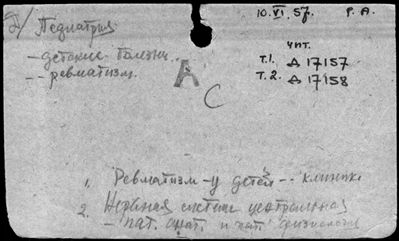 10.VI.57. Р.А.
2/ Педиатрия
- детские болезни..
- - ревматизм.
чит.
т.1. Д 17157
т.2. Д 17158
А
С
1. Ревматизм - у детей - - клиника
2. Нервная система центральная
- пат. анат. и пат. физиология